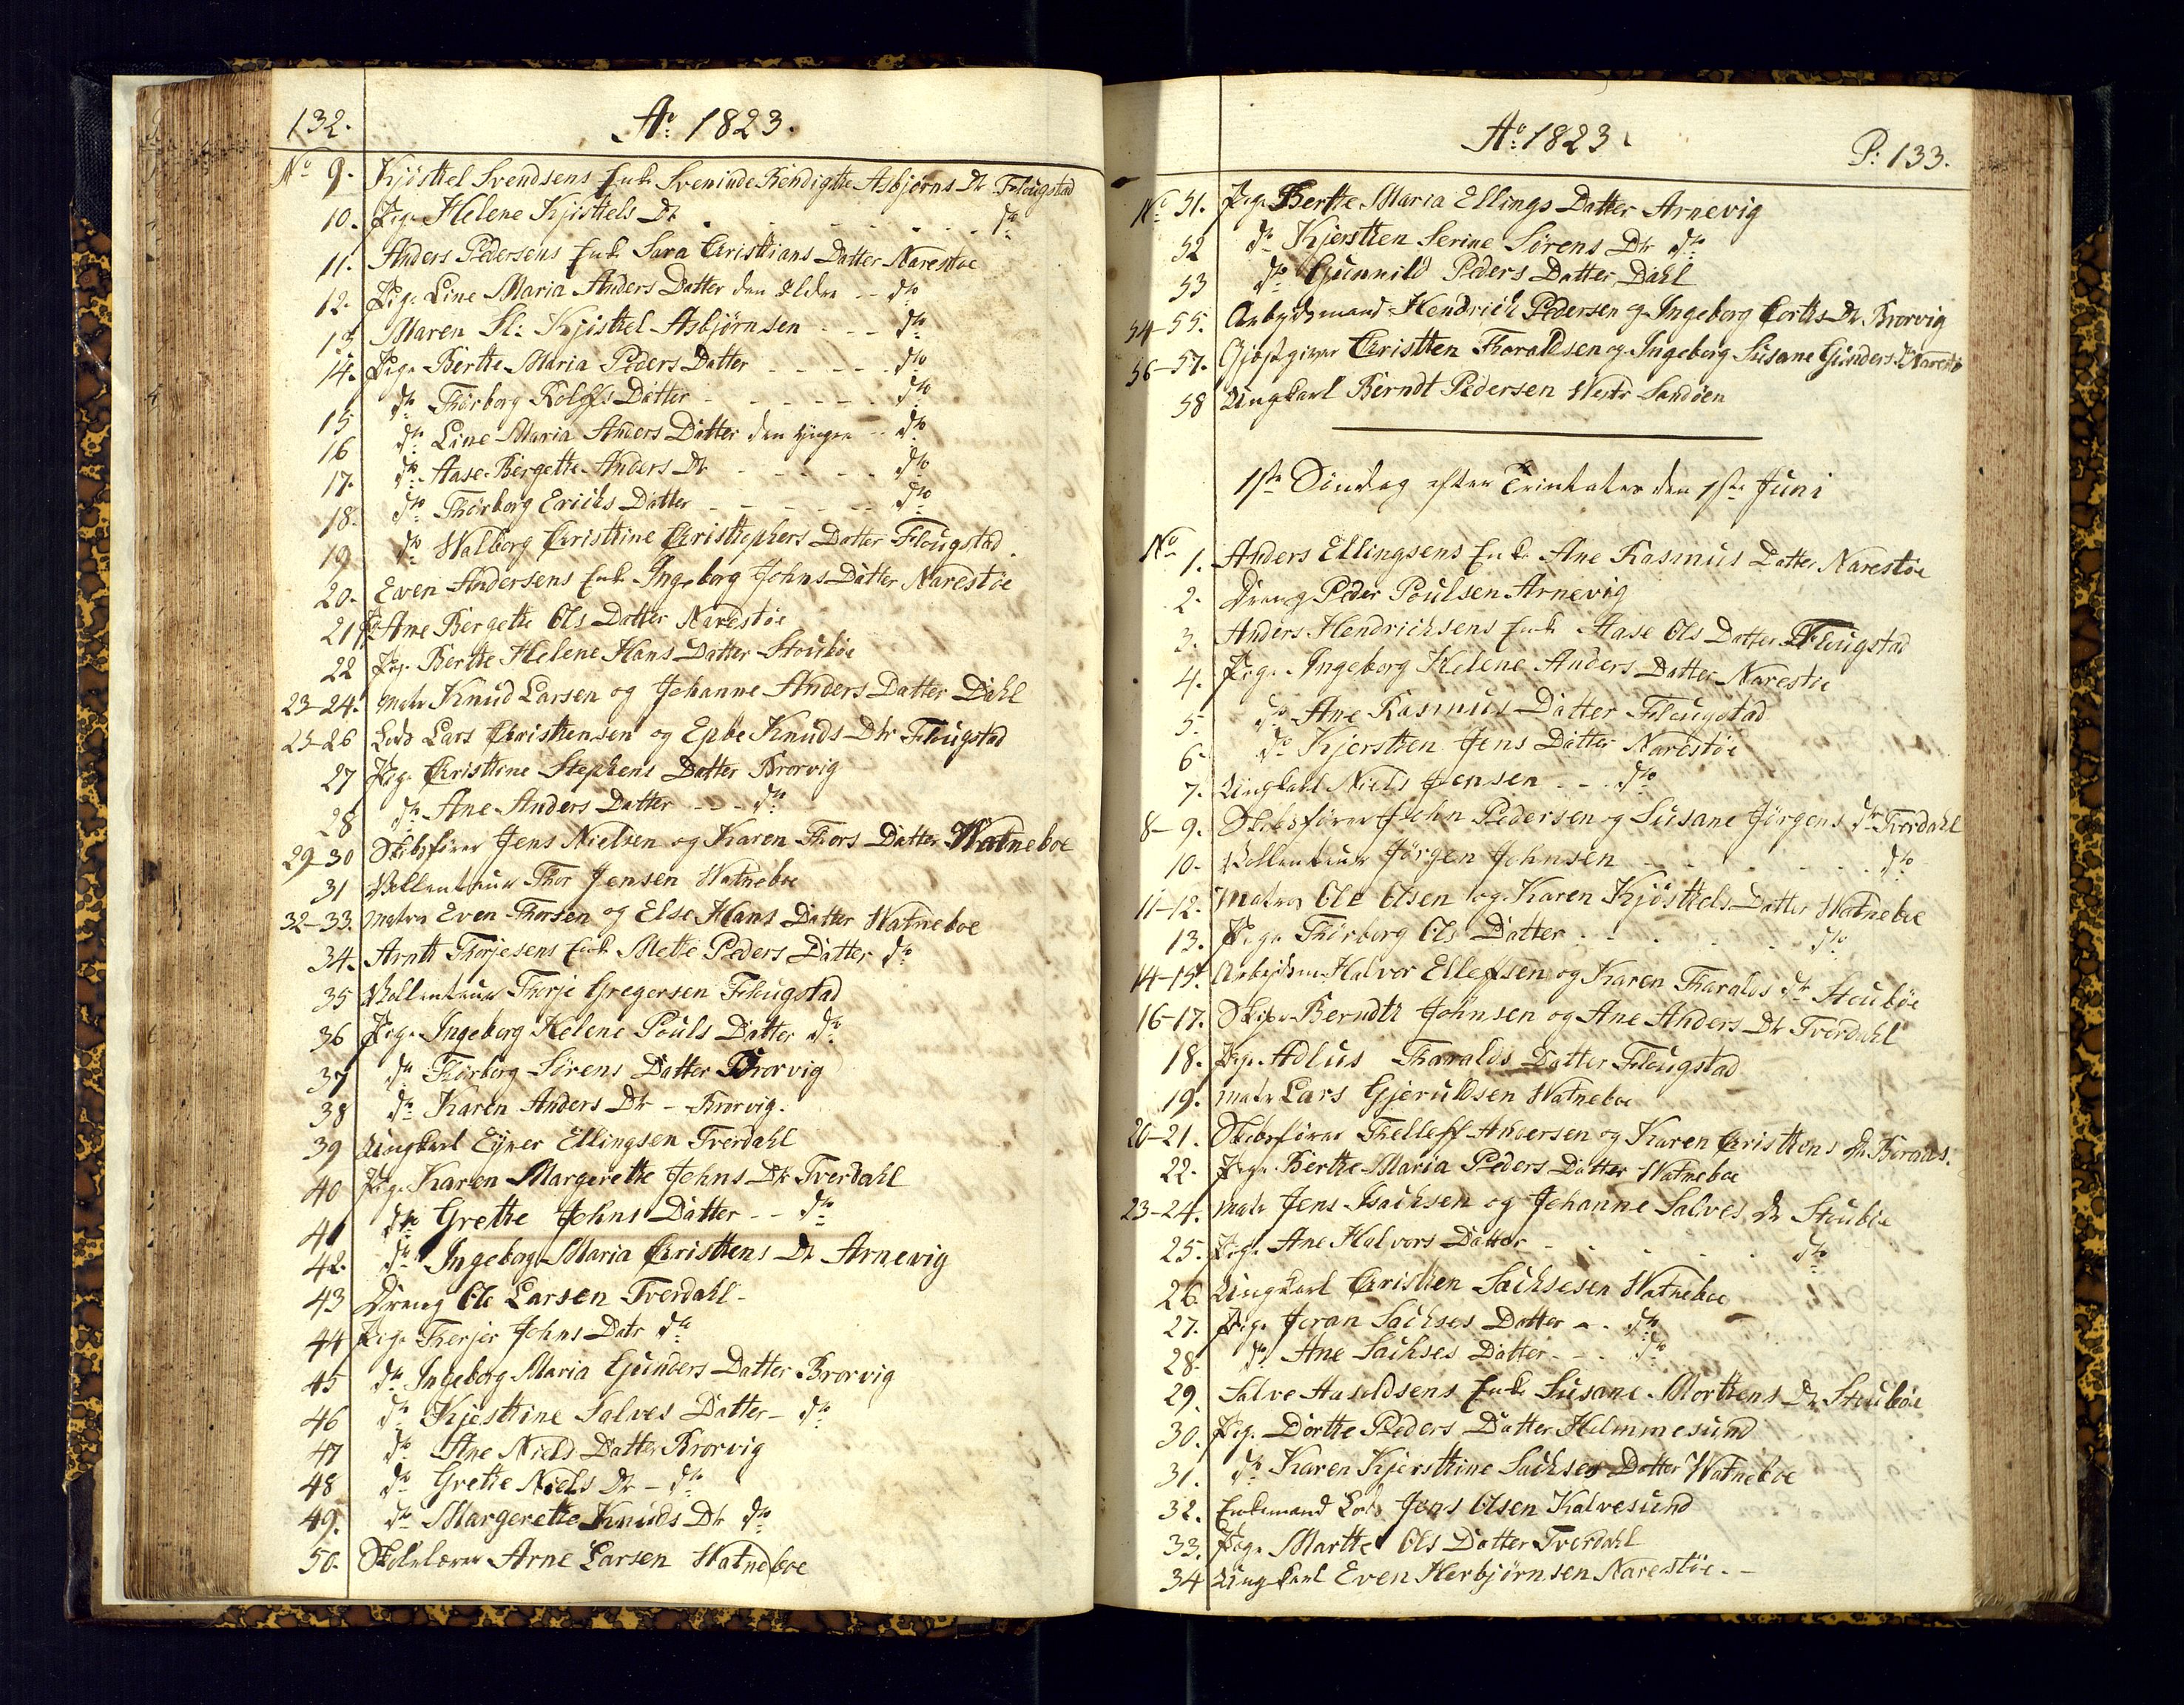 132.
Ao 1823.
No 9. Kjösttel Svendsens Enke Sveninde Bendigtte Asbjørns Dr Flougstad
10. Pige Helene Kjisttels Dr - - - - - - do
11. Anders Pedersens Enke Sara Christtians Datter Narestøe
12. Pige Line Maria Anders Datter den Eldre - - do
13 Maren Sl: Kjisttel Asbjørnsen - - - do
14. Pige Bertte Maria Peders Datter - - - - - do
15 do Thorborg Rolffs Datter - - - - - - do
16 do Line Maria Anders Datter den yngre - - do
17. do Aase Bergette Anders Dr - - - - - do
18. do Thorborg Erichs Datter - - - - - - do
19 do Walborg Christtine Christtophers Datter Flougstad.
20. Even Andersens Enke Ingeborg Johns Datter Narestøe
21 Pe Ane Bergette Ols Datter Narestøe
22 Pige Bertte Helene Hans Datter Stoubøe
23-24. Matr Knud Larsen og Johanne Anders Datter Dahl
25-26 Lods Lars Christtensen og Epbe Knuds Dtr Flougstad
27 Pige Christtene Stephens Datter Brorvig
28 do Ane Anders Datter - - - do
29-30 Skibsfører Jens Nielsen og Karen Thors Datter Watneboe
31 Vollenteur Thor Jensen Watneboe
32-33. Matros Even Thorsen og Else Hans Datter Watneboe
34. Arntt Thorjesens Enke Mette Peders Datter do
35 Vollenteur Therje Gregersen Flougstad
36 Pige Ingeborg Helene Pouls Datter do
37 do Thorborg Sørens Datter Brorvig
38 do Karen Anders Dtr - Brorvig.
39 Ungkarl Ejner Ellingsen Tverdahl
40 Pige Karen Margerette Johns Dtr Tverdahl
41 do Grette Johns Datter - - do
42. do Ingeborg Maria Christtens Dr Arnevig
43 Dreng Ole Larsen Tverdahl -
44 Pige Therjer Johns Datr do
45 do Ingeborg Maria Gunders Datter Brorvig
46 do Kjesttine Salves Datter - do
47 do Ane Niels Datter Brorvig
48 do Grette Niels Dr - do
49. do Margerette Knuds Dtr do
50. Skolelærer Arne Larsen Watneboe
Ao 1823.
P: 133.
No 51. Pige Bertte Maria Ellings Datter Arnevig
52 do Kjerstten Serine Sørens Dtr do
53 do Gunnild Peders Datter Dahl
54-55. Arbejdsmand Hendrich Pedersen og Ingeborg Corttes Dr Brorvig
56-57. Gjæstgiver Christten Tharaldsen og Ingeborg Susane Gunders Dr Narestø
58 Ungkarl Berndt Pedersen Westr Sandøen
1ste Søndag efter Trinitatis den 1ste Juni
No 1. Anders Ellingsens Enke Ane Rasmus Datter Narestøe
2. Dreng Peder Poulsen Arnevig
3. Anders Hendrichsens Enke Aase Ols Datter Flougstad
4. Pige Ingeborg Helene Anders Datter Narestøe
5. do Ane Rasmus Datter Flougstad
6. do Kjerstten Jens Datter Narestøe
7. Ungkarl Niels Jensen - - - do
8-9. Skibsfører John Pedersen og Susane Jörgens dr Tverdahl
10. Vollenteur Jörgen Johnsen - - - - - - do
11-12. Matros Ole Olsen og Karen Kjösttels Datter Watneboe
13. Pige Thorborg Ols Datter - - - - - do
14-15. Arbejdsm Halvor Elleffsen og Karen Tharalds dr Stoubøe
16-17. Skiper Berndtt Johnsen og Ane Anders Dtr Tverdahl
18. Pige Adlus Tharalds Datter Flougstad
19. Matr Lars Gjeruldsen Watneboe
20-21. Skibsfører Thelleff Andersen og Karen Christtens Dr Boraas.
22. Pige Bertte Maria Peders Datter Watneboe
23-24. Matr Jens Isachsen og Johanne Salves Dr Stoubøe
25. Pige Ane Halvors Datter - - - - - do
26. Ungkarl Christten Sachsesen Watneboe
27. Pige Joran Sachses Datter - - do
28. do Ane Sachses Datter - - - do
29. Salve Aasoldsens Enke Susane Morttens Dr Stoubøe
30. Pige Dortte Peders Datter Helmmesund
31. do Karen Kjersttine Sachses Datter Watneboe
32. Enkemand Lods Jens Olsen Kalvesund
33. Pige Martte Ols Datter Tverdahl
34 Ungkarl Even Herbjørnsen Narestøe. -